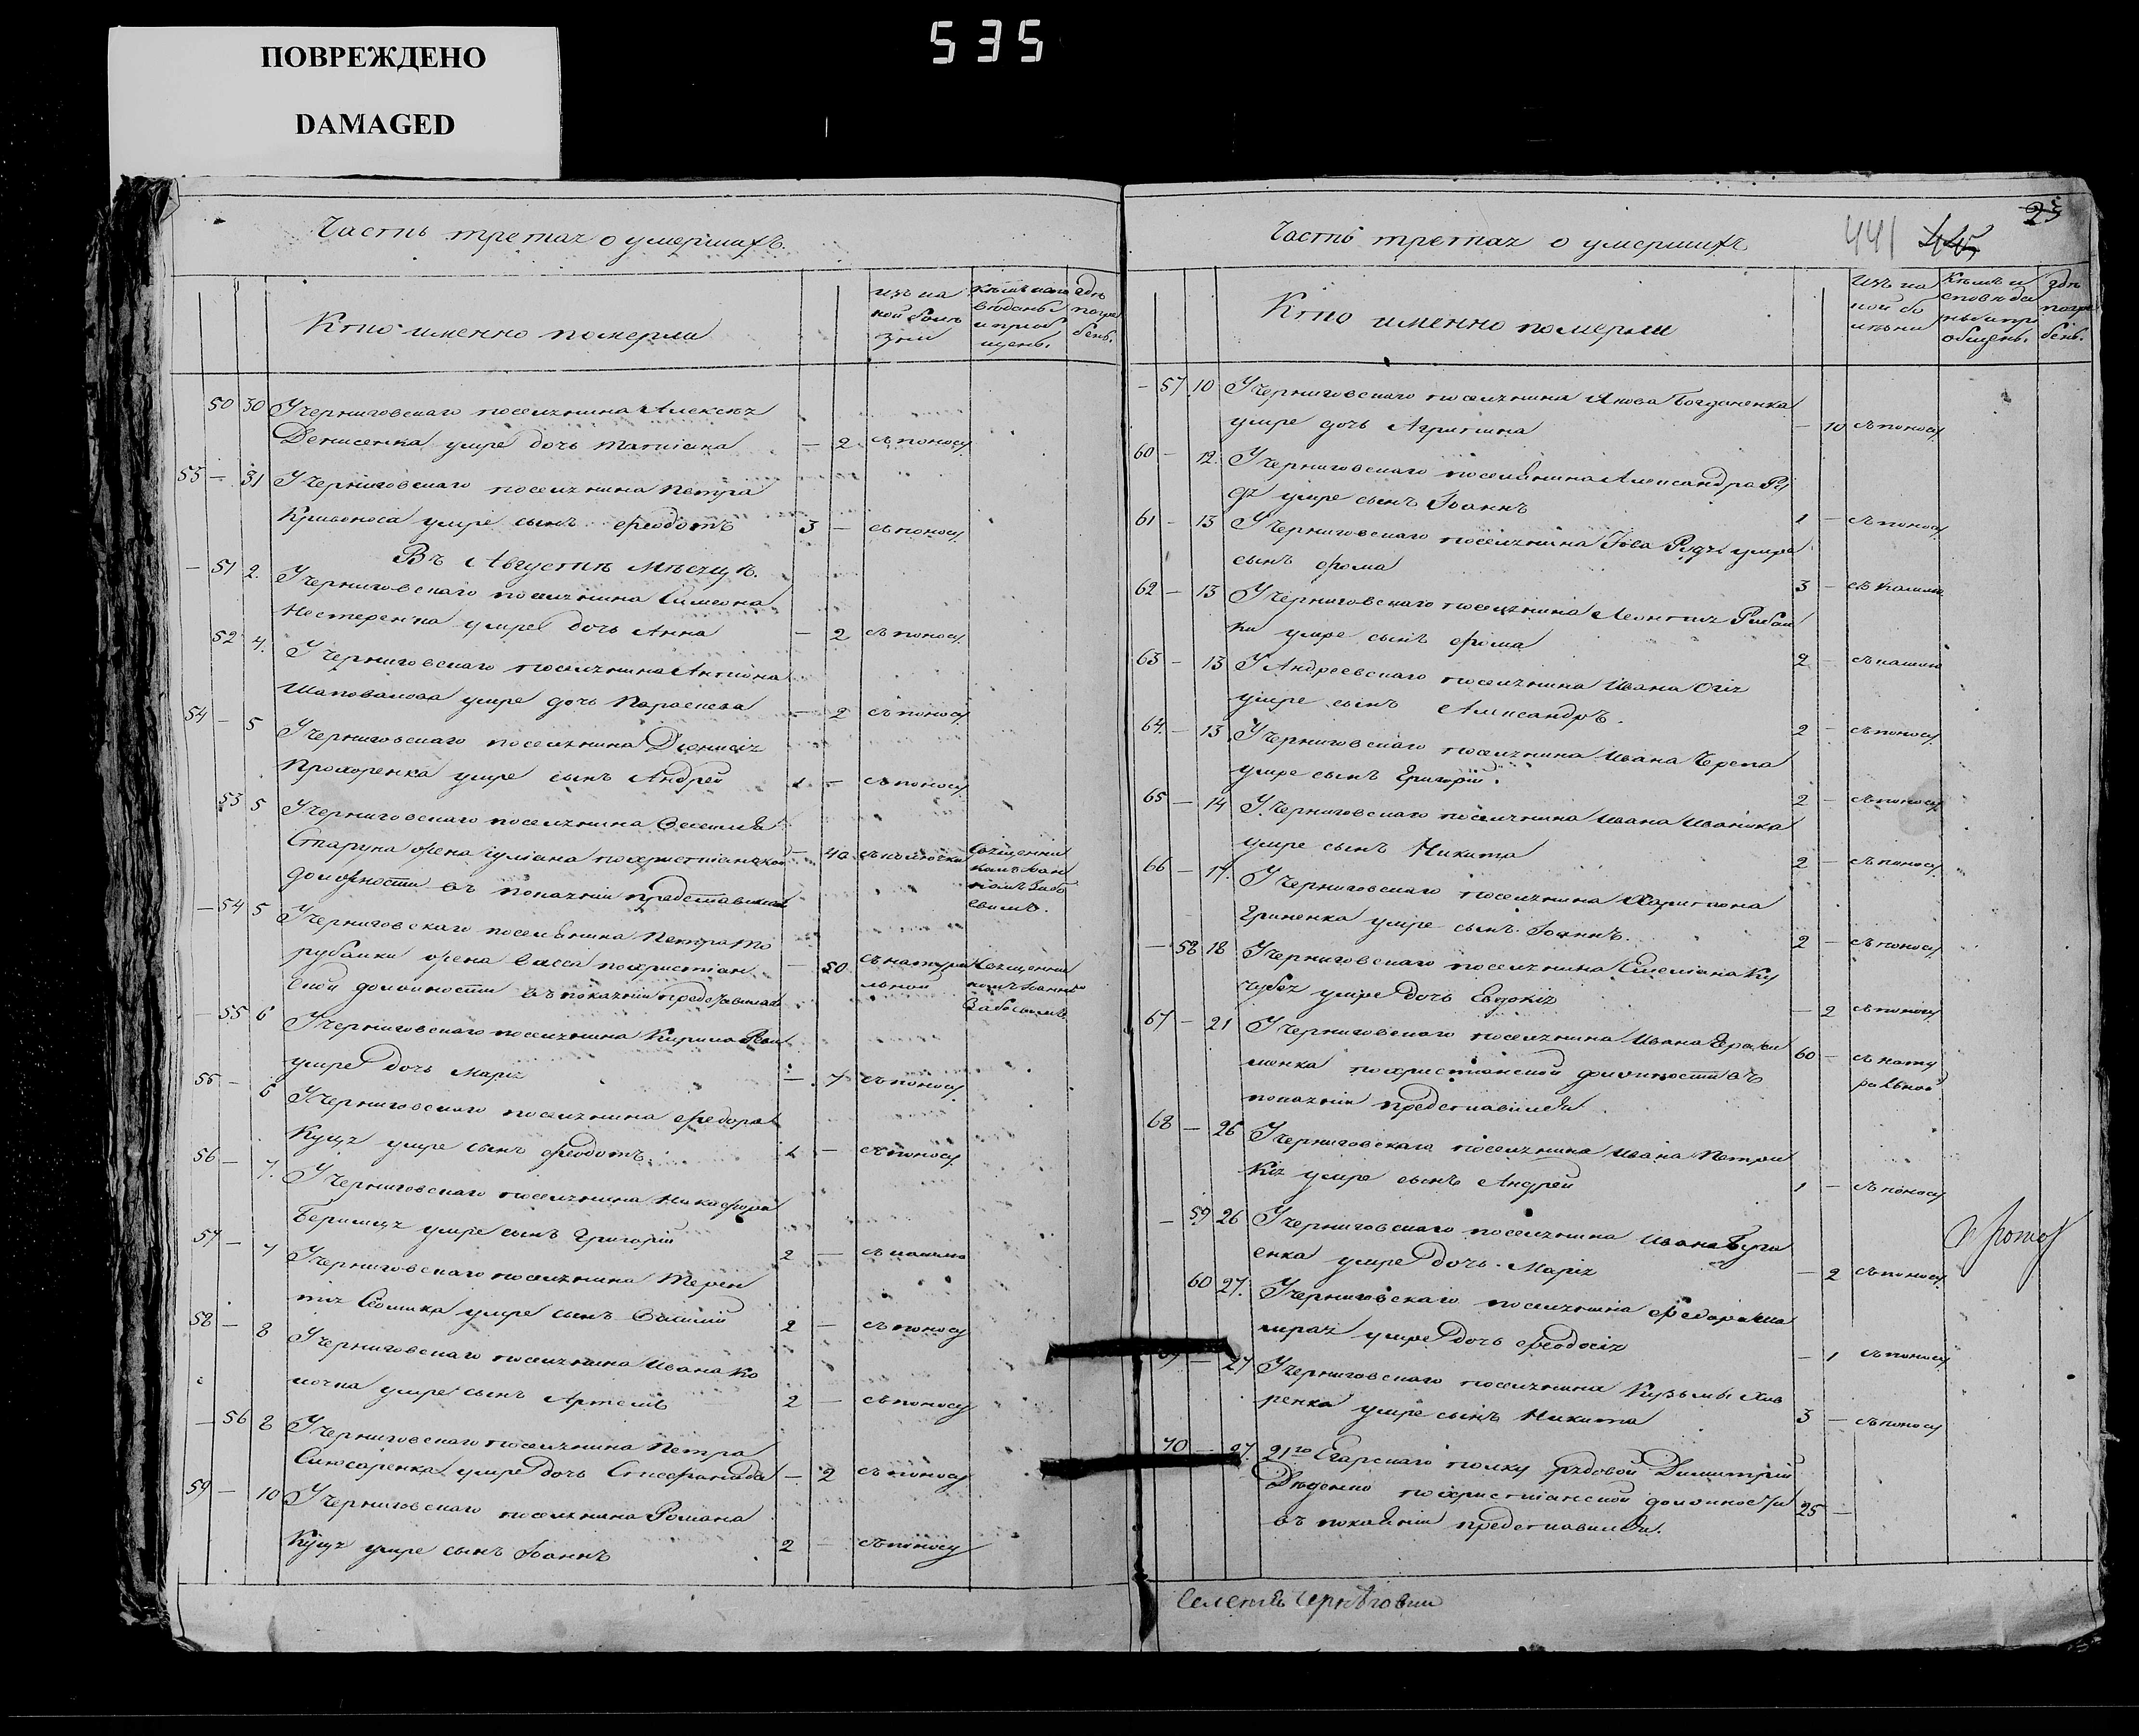 ПОВРЕЖДЕНО
DAMAGED
535
Часть третая о умершихъ.
Кто именно померли
изъ ка
кой болѣ
зни
гдѣ
погре
бенъ.
50 30 У Черниговскаго поселянина Алексѣя
Денисенка умре дочь Татіана — 2 съ поносу
53 — 31 У Черниговскаго поселянина Петра
Кривоноса умре сынъ Феодотъ 3 — съ поносу
Въ Августѣ Мѣсяцѣ.
— 51 2. У Черниговскаго поселянина Симеона
Нестеренка умре дочь Анна — 2 съ поносу
52 4. У Черниговскаго поселянина Антона
Шаповалова умре дочь Параскева — 2 съ поносу
54 — 5 У Черниговскаго поселянина Дионисія
Прохоренка умре сынъ Андрей 1 — съ поносу
53 5 У Черниговскаго поселянина
жена Іуліана по христіанской — 40
должности въ покаяніи представилась
— 54 5 У Черниговскаго поселянина Петра То
рубалки жена Васса по христіан — 50 съ натура
ской должности въ покаяніи представилась льной
— 55 6 У Черниговскаго поселянина Кирила
умре дочь Марія — 7 съ поносу
55 — 6 У Черниговскаго поселянина Федора
Куця умре сынъ Феодотъ 1 — съ поносу
56 — 7. У Черниговскаго поселянина Никифора
умре сынъ Григорій 2 — съ кашлю
57 — 7 У Черниговскаго поселянина Терен
тія умре сынъ Василій 2 — съ поносу
58 — 8 У Черниговскаго поселянина Ивана Ко
умре сынъ Артемъ 2 — съ поносу
— 56 8 У Черниговскаго поселянина Петра
Слюсаренка умре дочь Стефанида — 2 съ поносу
59 — 10 У Черниговскаго поселянина Романа
Куця умре сынъ Іоаннъ 2 — съ поносу
Часть третая о умершихъ
441
23
Кто именно померли
изъ ка
кой бо
лѣзни
Кѣмъ и
сповѣда
ны и пр
общены.
гдѣ
погре
бенъ.
— 57 10 У Черниговскаго поселянина Якова Богданенка
умре дочь Агрипина — 10 съ поносу
60 — 12. У Черниговскаго поселянина Александра Рѣ
дя умре сынъ Іоаннъ 1 — съ поносу
61 — 13 У Черниговскаго поселянина Іова умре
сынъ Фома 3 — съ кашлю
62 — 13 У Черниговскаго поселянина Леонтія Рибал
ки умре сынъ Фома 2 — съ кашлю
63 — 13 У Андреевскаго поселянина Ивана
умре сынъ Александръ. 2 — съ поносу
64. — 13 У Черниговскаго поселянина Ивана Черепа
умре сынъ Григорій. 2 — съ поносу
65 — 14 У Черниговскаго поселянина Ивана Иваника
умре сынъ Никита 2 — съ поносу
66 — 17. У Черниговскаго поселянина Харитона
Гриненка умре сынъ Іоаннъ. 2 — съ поносу
— 58 18 У Черниговскаго поселянина Емеліана Ку
чубея умре дочь Евдокія — 2 съ поносу
67 — 21 У Черниговскаго поселянина Ивана Ераси
менка по христіанской должности въ 60 — съ нату
покаяніи представился ральной
68 — 26 У Черниговскаго поселянина Ивана Петри
кія умре сынъ Андрей 1 — съ поносу
— 59 26 У Черниговскаго поселянина Ивана Буга
енка умре дочь Марія — 2 съ поносу
60 27. У Черниговскаго поселянина Федора Ша
мрая умре дочь Феодосія — 1 съ поносу
— 27 У Черниговскаго поселянина Кузьмы Хав
ренка умре сынъ Никита 3 — съ поносу
70 — 27. 21го Егарскаго полку рядовой Димитрій
Дѣденко по христіанской должности 25 —
въ покаяніи представился.